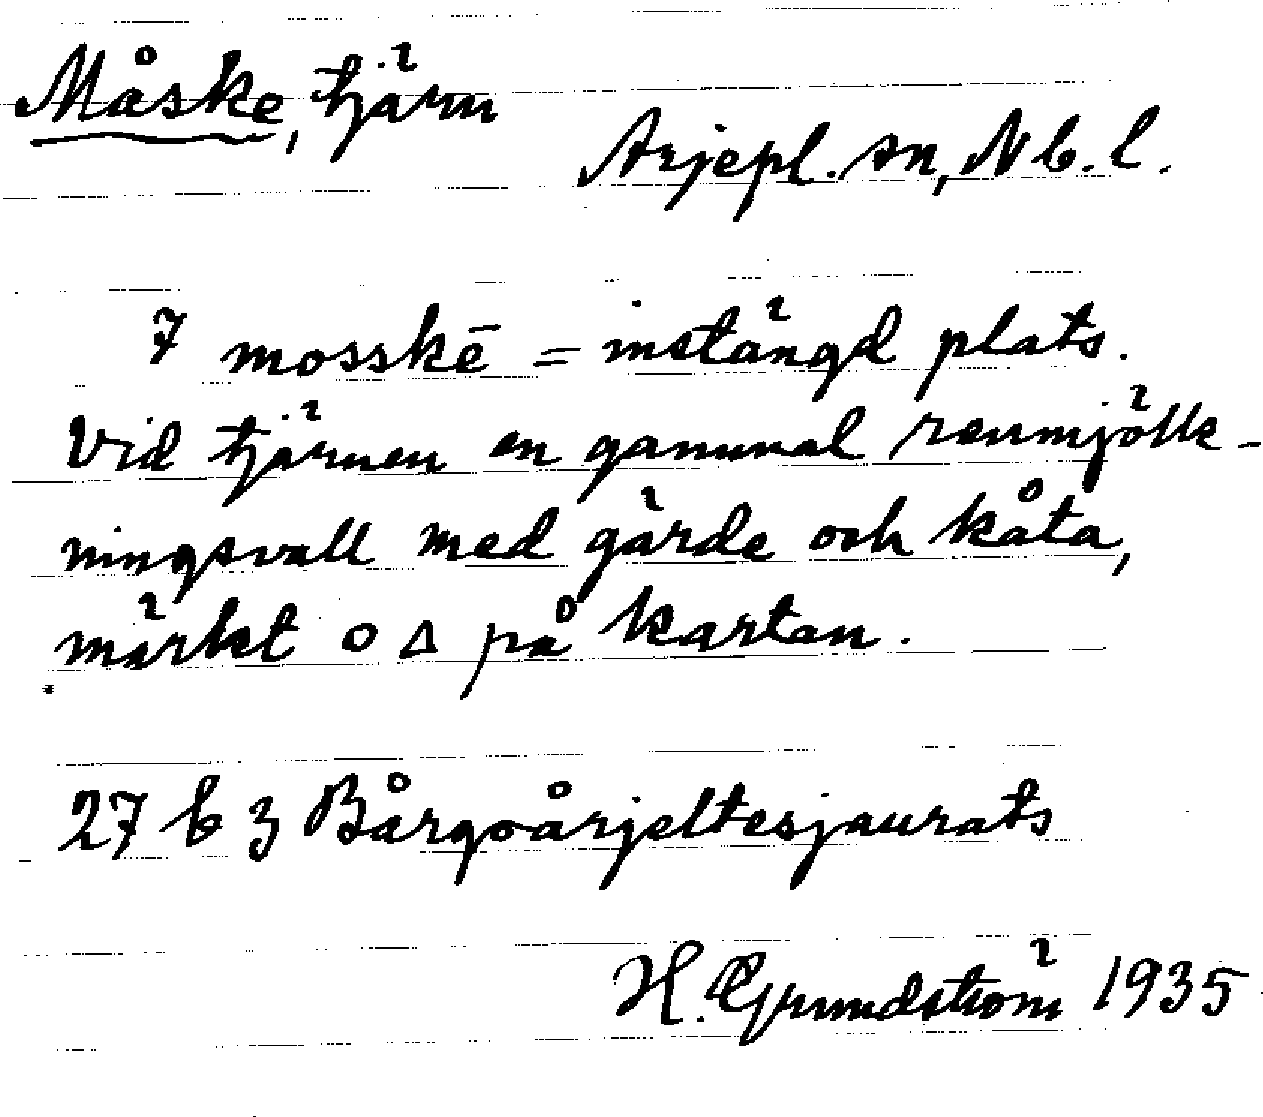 Måske, tjärn
Arjepl. sn, Nb. l.
7 mosskē = instängd plats.
Vid tjärnen en gammal renmjölk-
ningsvall med gärde och kåta,
märkt o Δ på kartan.
27 b 3 Bårgoårjeltesjaurats
H. Grundström 1935